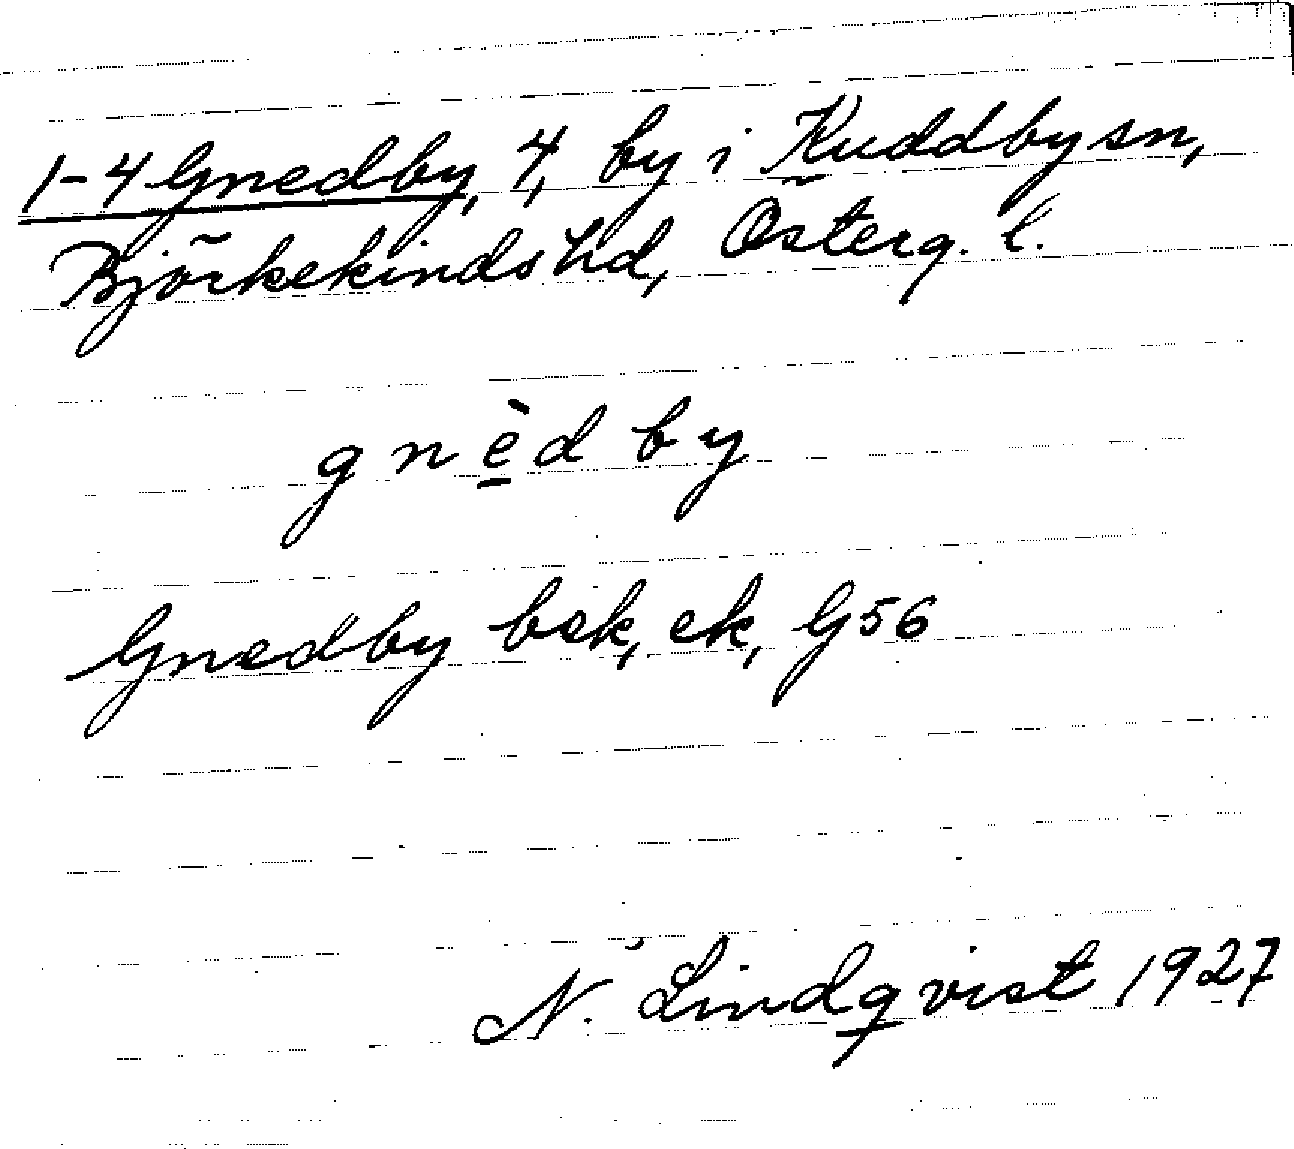 1-4 Gnedby, 4, by i Kuddby sn,
Björkekinds hd, Österg. l.
gnèdby
Gnedby bek, ek, G56
N. Lindqvist 1927